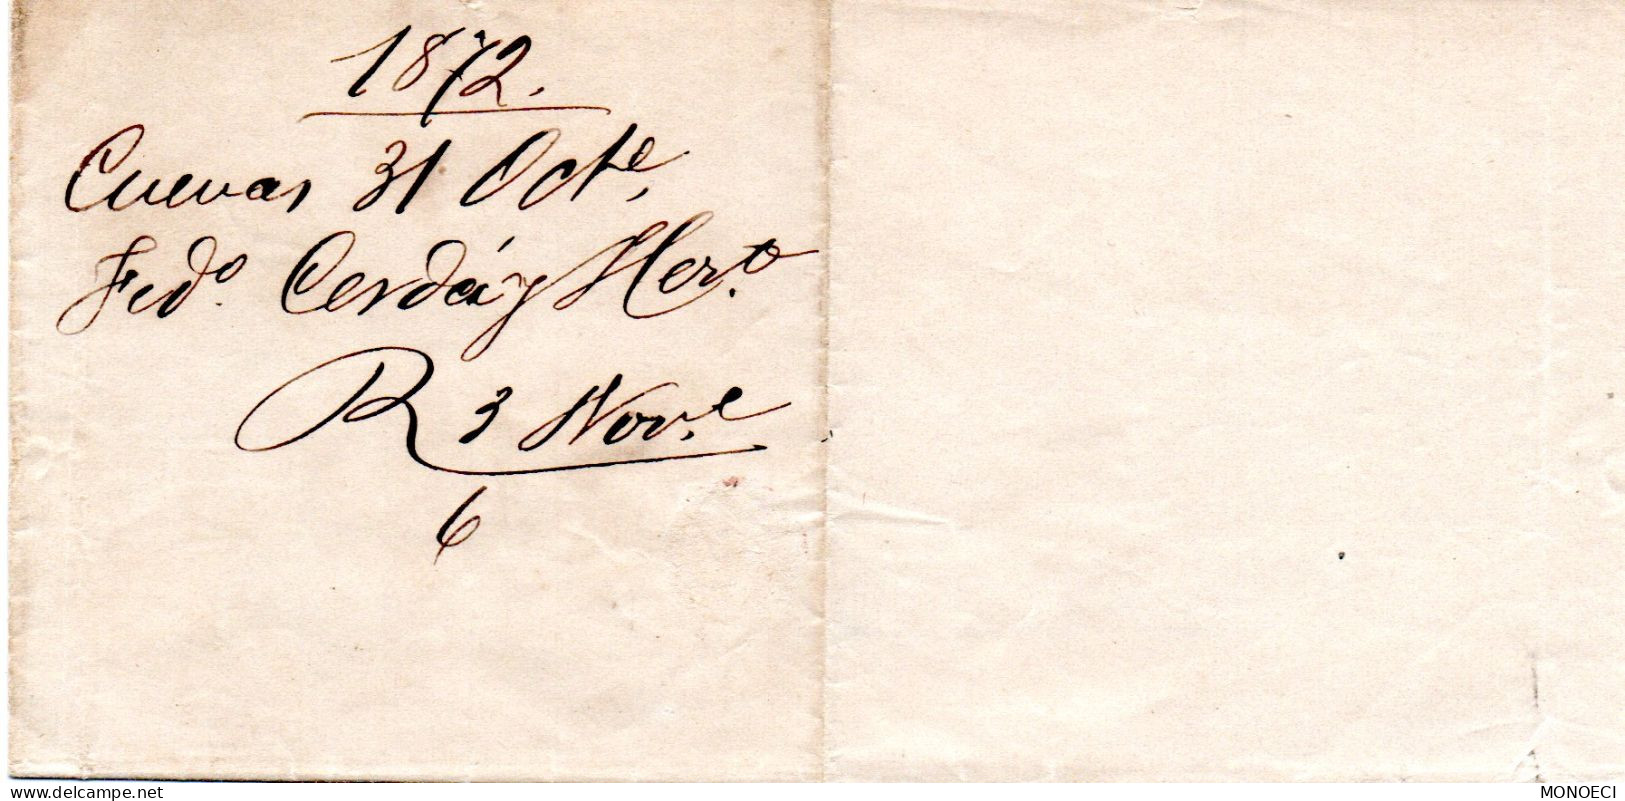 1872.
Cuevas 31 Octe,
Fedo. Cerdá y Herto.
R 3 Nove.
6
www.delcampe.net
MONOECI